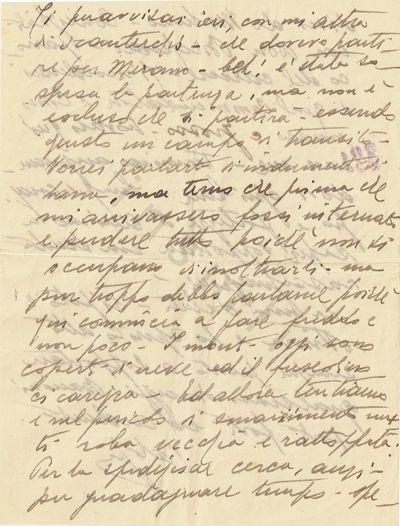 Ti preavvisai ieri, con mi altra
di scantucchio - che dovevo parti-
re per Merano - beh! è stata so-
spesa la partenza, ma non è
escluso che si partirà - essendo
questo un campo di transito -
Vorrei parlarti di indumenti di
lana, ma temo che prima che
mi arrivassero fossi internato
e perdere tutto poichè non si
occupano d'inoltrarti - ma
pur troppo debbo parlarne poichè
qui comincia a fare freddo e
non poco - I monti oggi sono
coperti di neve ed il freschino
ci carezza - Ed allora tentiamo
e nel pericolo di smarrimento
ti roba vecchia e rattoppata.
Per la spedizione cerca, anzi-
per guadagnare tempo - spe-